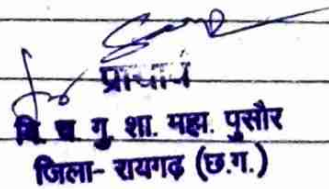 प्राचार्य
गु. शा. महा. पुसौर
जिला- रायगढ़ (छ.ग.)